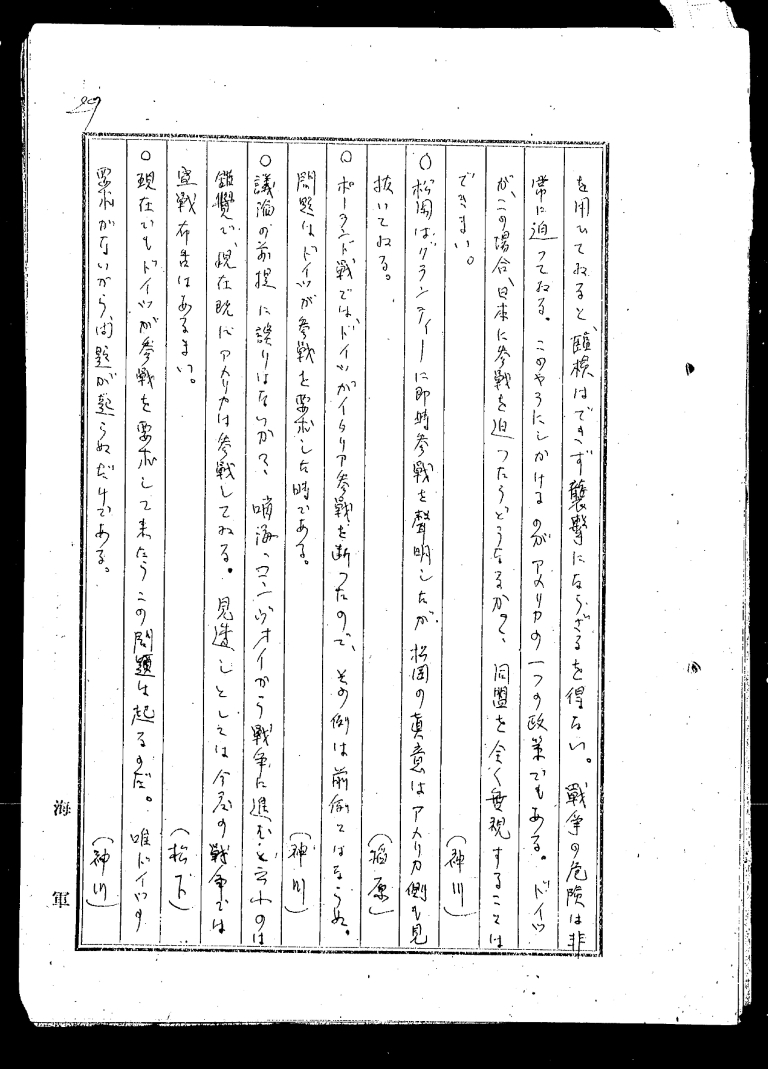 を用ひてゐると、臨検はできず襲撃にならざるを得ない。戦争の危険は非
常に迫つてゐる。このやうにしかけるのがアメリカの一つの政策でもある。ドイツ
が、この場合、日本に参戦を迫つたらどうなるか?、同盟を全く無視することは
できまい。 (神川)
○松岡はグランティーに即時参戦を聲明したが、松岡の真意はアメリカ側も見
抜いてゐる。 (稲原)
○ポーランド戦では、ドイツがイタリア参戦を断つたので、その例は前例とはならぬ。
問題はドイツが参戦を要求した時である。 (神川)
○議論の前提に誤りはないか?、哨海、コンヴオイから戦争に進むと云ふのは
錯覺で、現在既にアメリカは参戦してゐる。見透しとしては今度の戦争では
宣戦布告はあるまい。 (松下)
○現在でもドイツが参戦を要求して来たらこの問題は起るのだ。唯ドイツの
要求がないから、問題が起らぬだけである。 (神川)
海軍